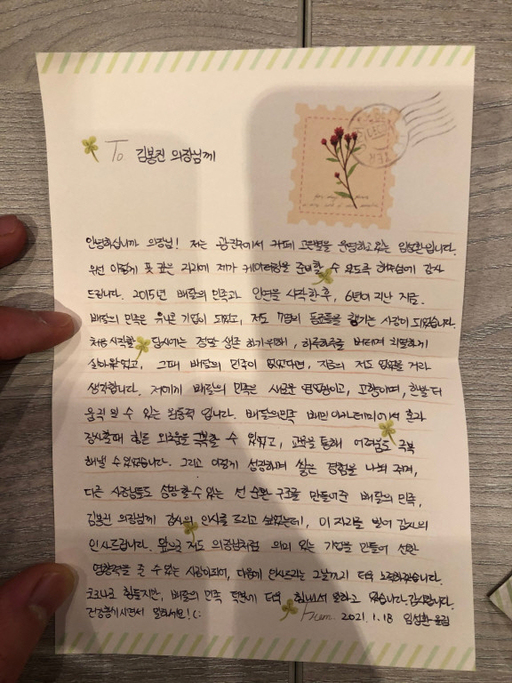 To 김봉진 의장님께
안녕하십니까 의장님! 저는 광진구에서 카페 고르뱅을 운영하고 있는 임성환입니다.
우선 이렇게 뜻 깊은 자리에 제가 케이터링을 준비할 수 있도록 해주심에 감사
드립니다. 2015년 배달의 민족과 인연을 시작한 후, 6년이 지난 지금.
배달의 민족은 유니콘 기업이 되었고, 저도 7명의 동료들을 챙기는 사장이 되었습니다.
처음 시작할 당시에는 정말 생존 하기 위해, 하루하루를 버티며 치열하게
살아왔었고, 그때 배달의 민족이 없었다면, 지금의 저도 없었을 거라
생각합니다. 저에게 배달의 민족은 새로운 영감이고, 고향이며, 한발 더
움직일 수 있는 원동력 입니다. 배달의민족 배민 아카데미에서 혼자
장사할때 힘든 외로움을 극복할 수 있었고, 교육을 통해 어려움도 극복
해낼 수 있었습니다. 그리고 이렇게 성장하며 쌓은 경험을 나눠 주며,
다른 사장님들도 성장 할 수 있는 선 순환 구조를 만들어준 배달의 민족,
김봉진 의장님께 감사의 인사를 드리고 싶었는데, 이 자리를 빌어 감사의
인사드립니다. 앞으로 저도 의장님처럼 의미 있는 기업을 만들어 선한
영향력을 줄 수 있는 사람이되어, 다음에 인사드리는 그날까지 더욱 노력하겠습니다.
코로나로 힘들지만, 배달의 민족 덕분에 더욱 힘내서 잘하고 있습니다. 감사합니다.
건강하시면서 오래하세요! (: From 2021. 1. 18 임성환 올림